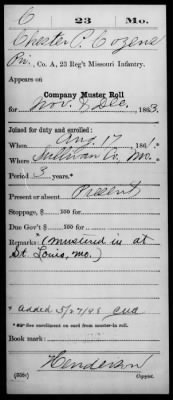 C | 23 | Mo.
Chester C. Cozens
Pvt., Co. A, 23 Reg't Missouri Infantry.
Appears on
Company Muster Roll
for Nov. & Dec., 1863.
Joined for duty and enrolled:
When Aug. 17, 1861.
Where Sullivan Co. Mo.
Period 3 years.*
Present or absent Present
Stoppage, $ 100 for
Due Gov't $ 100 for
Remarks: (mustered in at
St. Louis, Mo.)
* added 5/27/48
* See enrollment on card from muster-in roll.
Book mark:
Henderson
(358c) Copyist.